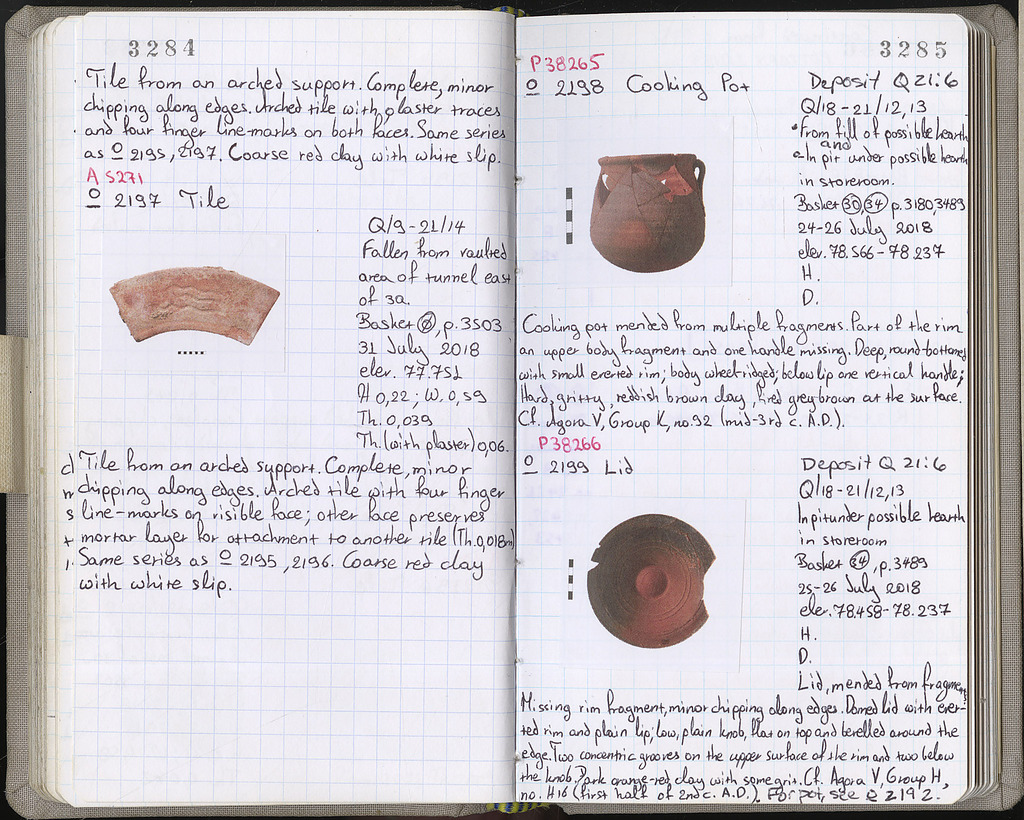 3284
Tile from an arched support. Complete, minor
chipping along edges. Arched tile with plaster traces
and four finger line-marks on both faces. Same series
as O 2195, 2197. Coarse red clay with white slip.
A 5271
O 2197 Tile
Q/9-21/14
Fallen from vaulted
area of tunnel east
of 3a.
Basket, p. 3503
31 July 2018
elev. 77.751
H 0,22; W. 0,59
Th. 0,039
Th. (with plaster) 0,06.
Tile from an arched support. Complete, minor
chipping along edges. Arched tile with four finger
line-marks on visible face; other face preserves
mortar layer for attachment to another tile (Th. 0,018m)
Same series as O 2195, 2196. Coarse red clay
with white slip.
3285
P38265
O 2198 Cooking Pot
Deposit Q 21:6
Q/18-21/12,13
•From fill of possible hearth
and
In pit under possible hearth
in storeroom.
Basket 30, 34 p. 3180, 3489
24-26 July 2018
elev. 78.566-78.237
H.
D.
Cooking pot mended from multiple fragments. Part of the rim
an upper body fragment and one handle missing. Deep, round-bottomed
with small everted rim; body wheel-ridged; below lip one vertical handle;
Hard, gritty, reddish brown clay, fired grey-brown at the surface.
Cf. Agora V, Group K, no. 92 (mid-3rd c. A.D.).
P38266
O 2199 Lid
Deposit Q 21:6
Q/18-21/12,13
In pit under possible hearth
in storeroom
Basket 34, p. 3489
25-26 July 2018
elev. 78.458-78.237
H.
D.
Lid, mended from fragments
Missing rim fragment, minor chipping along edges. Domed lid with ever-
ted rim and plain lip; low, plain knob, flat on top and bevelled around the
edge. Two concentric grooves on the upper surface of the rim and two below
the knob. Dark orange-red clay with some grit. Cf. Agora V, Group H,
no. H16 (first half of 2nd c. A.D.). For pot, see O 2192.